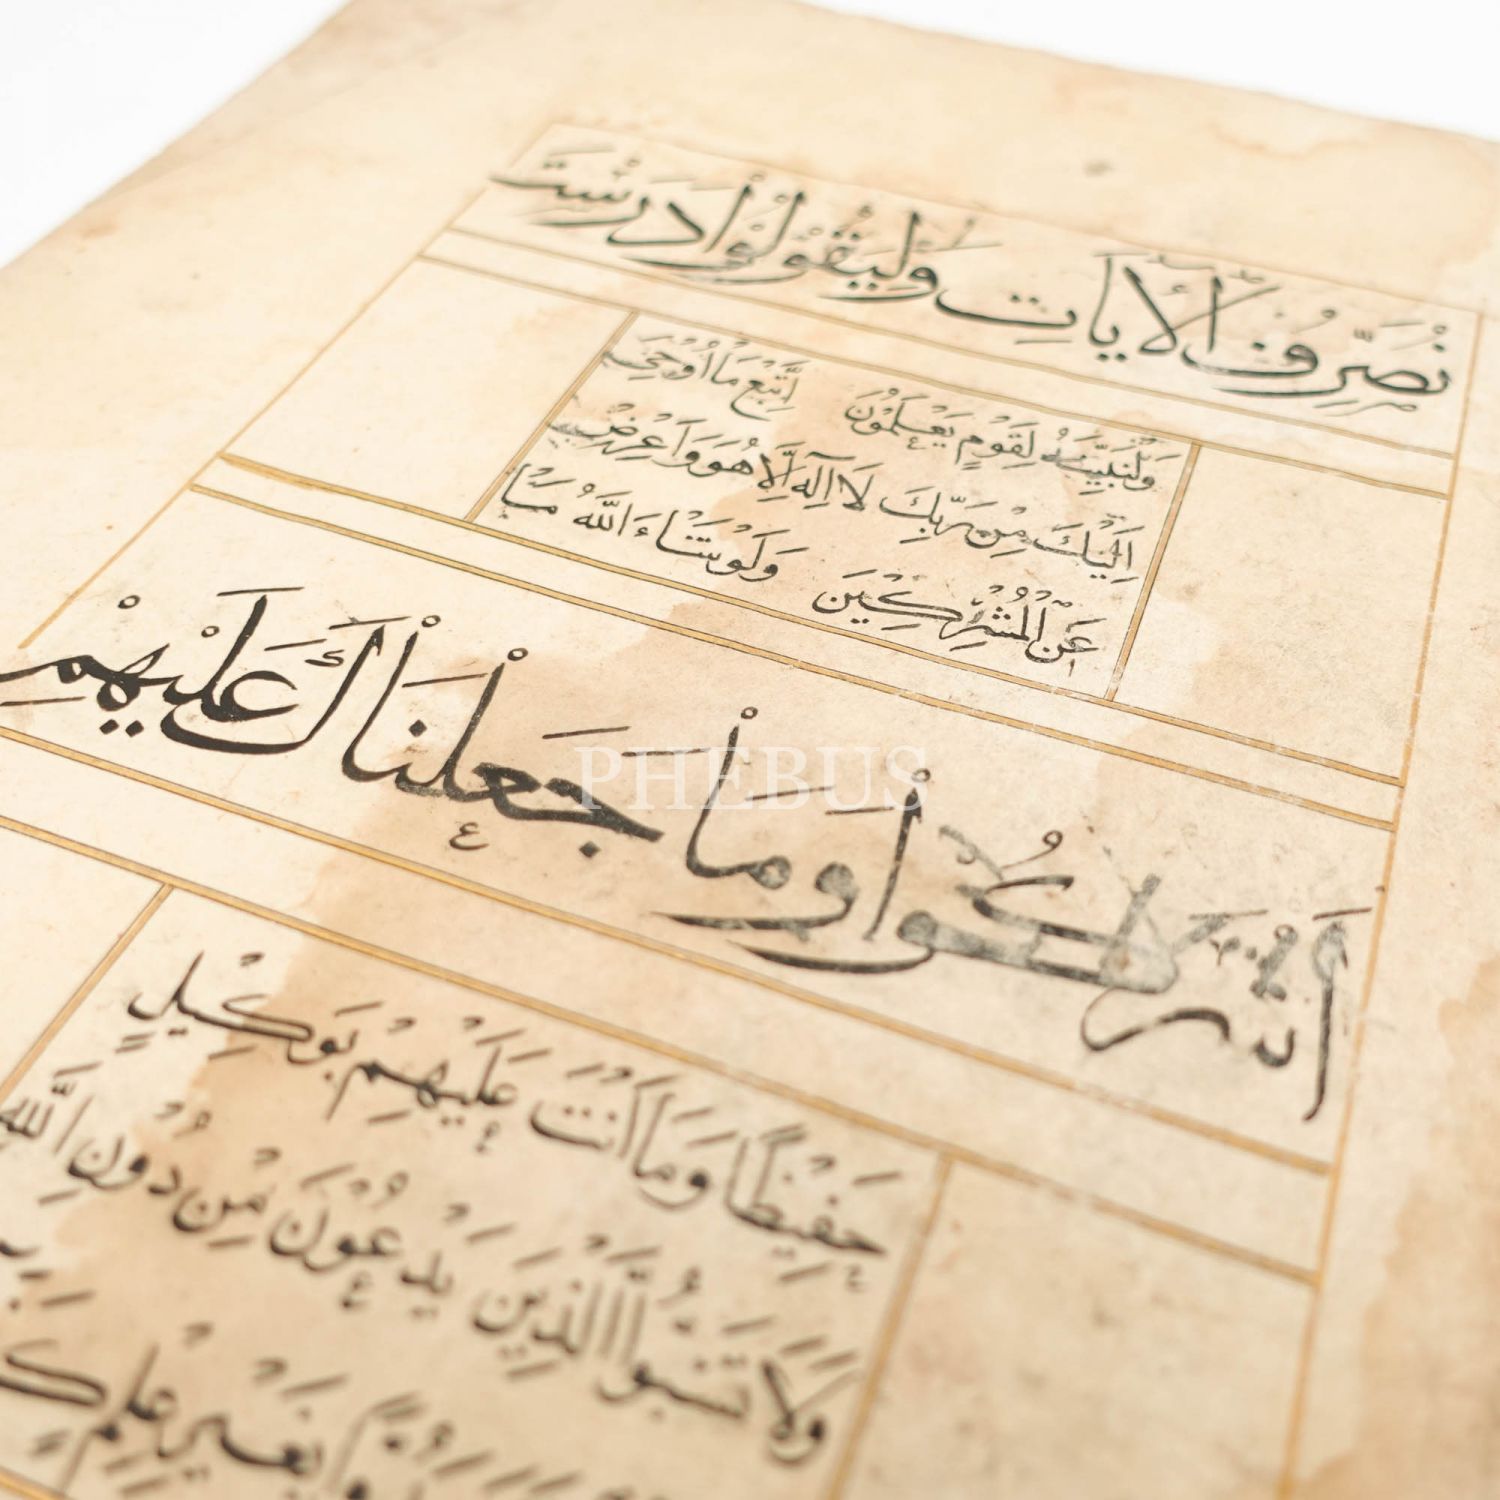 نُصَرِّفُ الْآيَاتِ وَلِيَقُولُوا دَرَسْتَ
وَلِنُبَيِّنَهُ لِقَوْمٍ يَعْلَمُونَ اِتَّبِعْ مَا اُوحِيَ
اِلَيْكَ مِنْ رَبِّكَ لَا اِلٰهَ اِلَّا هُوَ وَاَعْرِضْ
عَنِ الْمُشْرِكِينَ وَلَوْ شَاءَ اللّٰهُ مَا
اَشْرَكُوا وَمَا جَعَلْنَاكَ عَلَيْهِمْ
PHEBUS
حَفِيظًا وَمَا اَنْتَ عَلَيْهِمْ بِوَكِيلٍ
وَلَا تَسُبُّوا الَّذِينَ يَدْعُونَ مِنْ دُونِ اللّٰهِ
بِغَيْرِ عِلْمٍ